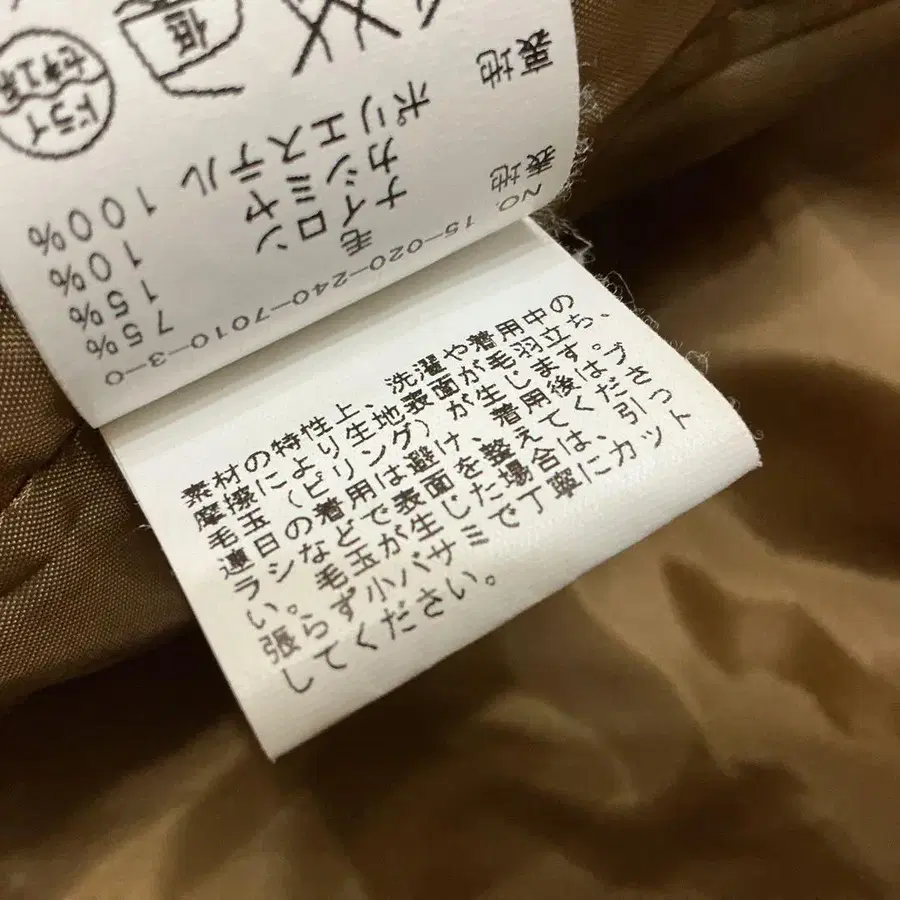 NO. 15-020-240-7010-3-0
表地 毛 75%
ナイロン 15%
カシミヤ 10%
裏地 ポリエステル 100%
ドライ
セキユ系
低
素材の特性上、洗濯や着用中の
摩擦により生地表面が毛羽立ち、
毛玉（ピリング）が生じます。
連日の着用は避け、着用後はブ
ラシなどで表面を整えてくださ
い。毛玉が生じた場合は、引っ
張らず小バサミで丁寧にカット
してください。